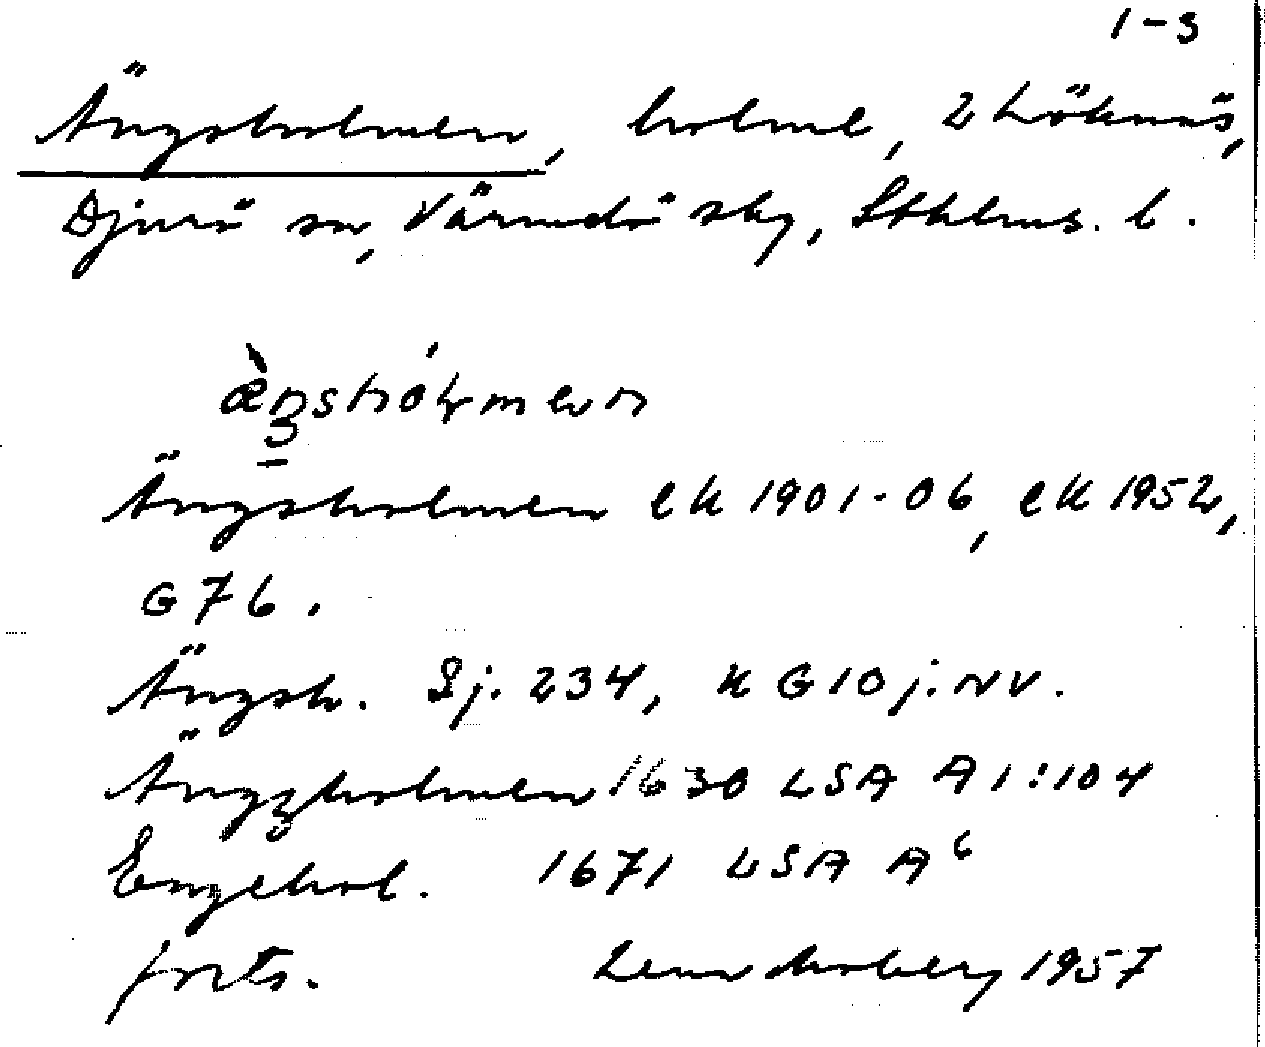 1-3
Ängsholmen, holme, 2 Löknäs,
Djurö sn, Värmdö skg, Sthlms. l.
Ängsholmen ek 1901-06, ek 1952,
G 76.
Ängsh. Sj. 234, k G 10 j. NV.
Ängzholmen 1630 LSA A 1:104
Engehol. 1671 LSA A 6
forts. 1957